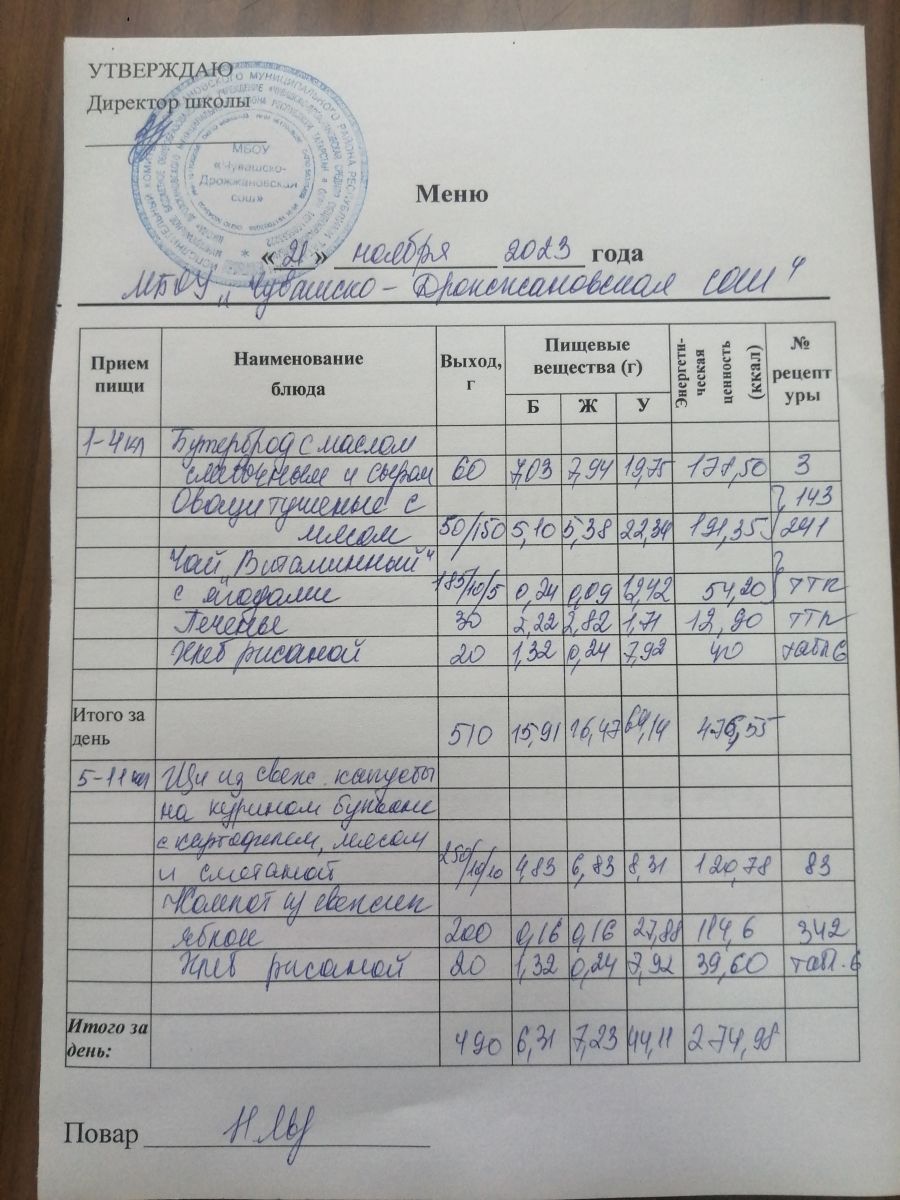 УТВЕРЖДАЮ
Директор школы
МБОУ
«Чувашско-
Дрожжановская
сош»
Меню
«21» ноября 2023 года
МБОУ „Чувашско-Дрожжановская сош"
Прием пищи Наименование блюда Выход, г Пищевые вещества (г) Б Ж У Энергети-ческая ценность (ккал) № рецептуры
1-4 кл Бутерброд с маслом
сливочным и сыром 60 7,03 7,94 19,75 178,50 3
Овощи тушеные с 143
мясом 50/150 5,10 5,38 22,34 191,35 241
Чай „Витаминный"
с ягодами 185/10/5 0,24 0,09 12,42 54,20 ТТК
Печенье 30 2,22 2,82 1,71 12,90 ТТК
Хлеб ржаной 20 1,32 0,24 7,92 40 табл 6
Итого за день 510 15,91 16,47 64,14 476,55
5-11 кл Щи из свеж. капусты
на курином бульоне
с картофелем, мясом
и сметаной 250/10/10 4,83 6,83 8,31 120,78 83
Компот из свежих
яблок 200 0,16 0,16 27,88 114,6 342
Хлеб ржаной 20 1,32 0,24 7,92 39,60 табл. 6
Итого за день: 490 6,31 7,23 44,11 274,98
Повар